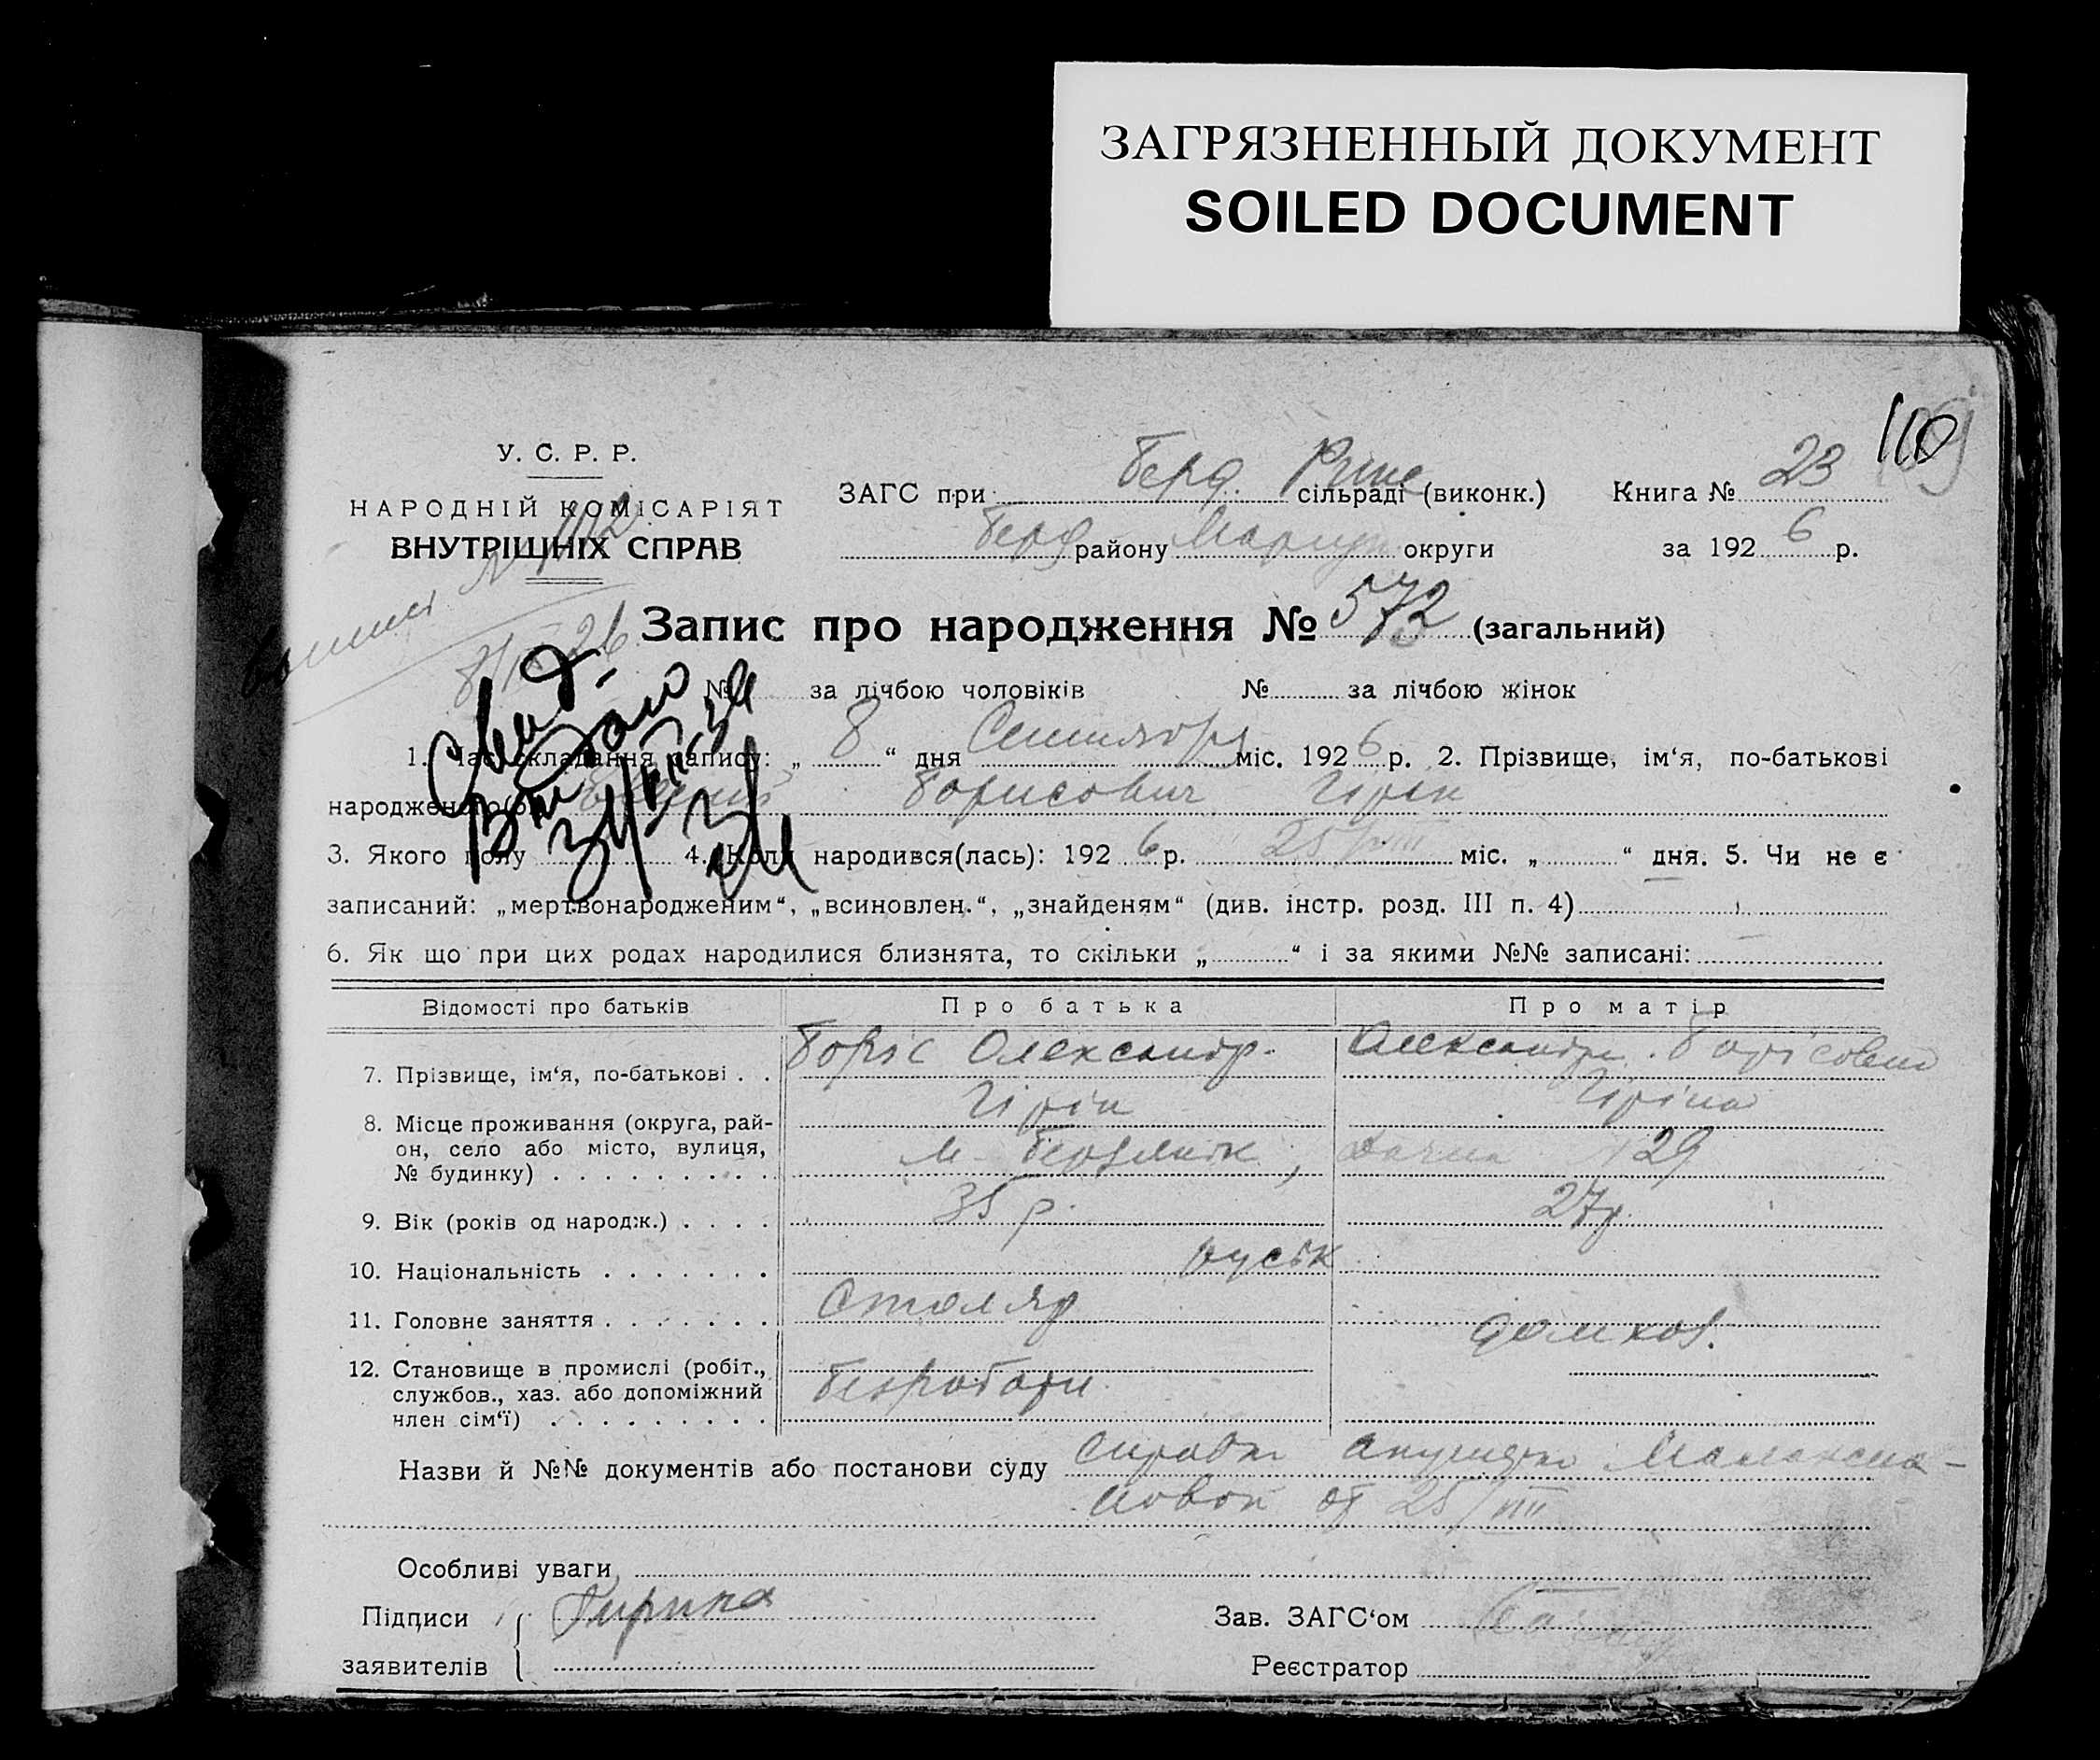 ЗАГРЯЗНЕННЫЙ ДОКУМЕНТ
SOILED DOCUMENT
110
У. С. Р. Р.
НАРОДНІЙ КОМІСАРІЯТ
ВНУТРІШНІХ СПРАВ
ЗАГС при Берд. сільраді (виконк.) Книга № 23
Берд району Маріуп округи за 1926 р.
8/IX 26
Запис про народження № 572 (загальний)
Свид.
Выдано
31/VII-34
№ за лічбою чоловіків № за лічбою жінок
1. Час складання запису: „ 8 “ дня Сентября міс. 1926 р. 2. Прізвище, ім‘я, по-батькові
народженого(ої) Борисович Гірін
3. Якого полу 4. Коли народився(лась): 1926 р. 25/VIII міс. „ “ дня. 5. Чи не є
записаний: „мертвонародженим“, „всиновлен.“, „знайденям“ (див. інстр. розд. III п. 4)
6. Як що при цих родах народилися близнята, то скільки „ “ і за якими №№ записані:
Відомості про батьків Про батька Про матір
7. Прізвище, ім‘я, по-батькові . . Боріс Олександр. Гірін Олександра Борісовна Гіріна
8. Місце проживання (округа, рай-
он, село або місто, вулиця,
№ будинку) . . . . . . . . . . м. Бердянськ, 29
9. Вік (років од народж.) . . . . 35 р. 27 р.
10. Національність . . . . . . . руськ
11. Головне заняття . . . . . . . Столяр домхоз.
12. Становище в промислі (робіт.,
службов., хаз. або допоміжний
член сім‘ї) . . . . . . . . . безработн
Назви й №№ документів або постанови суду справки акушерки
новой от 25/VIII
Особливі уваги
Підписи Гирина Зав. ЗАГС‘ом
заявителів Реєстратор